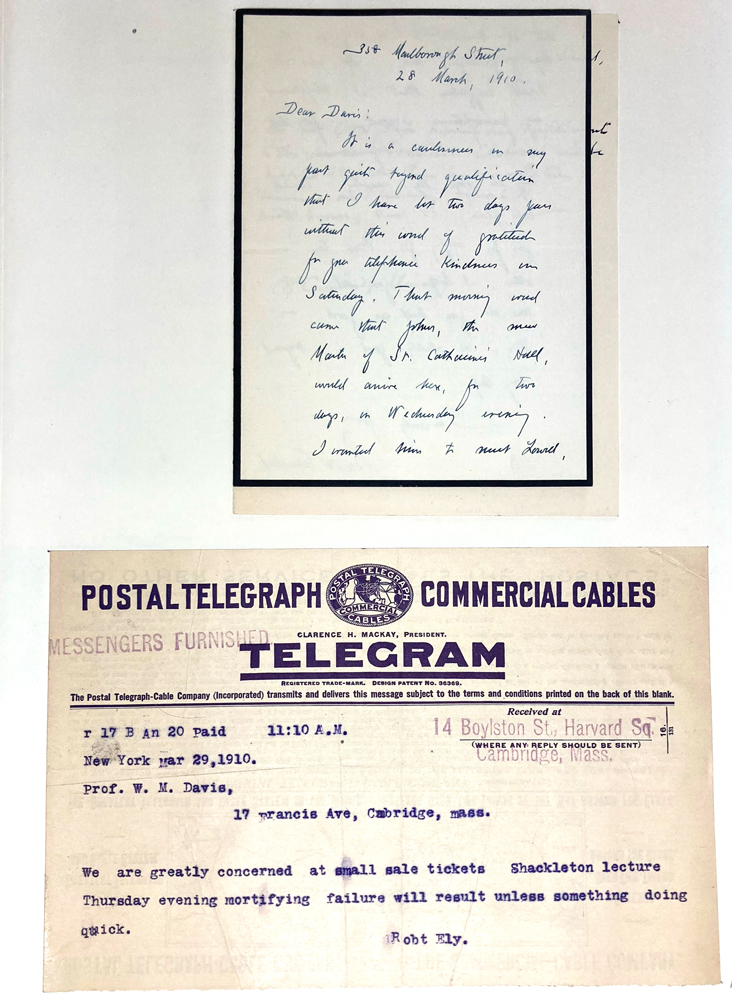 358 Marlborough Street,
28 March, 1910.
Dear Davis:
It is a carelessness on my
part quite beyond qualification
that I have let two days pass
without this word of gratitude
for your telephonic kindness on
Saturday. That morning word
came that Johns, the new
Master of St. Catharine's Hall,
would arrive here, for two
days, on Wednesday evening.
I wanted him to meet Lowell,
POSTAL TELEGRAPH COMMERCIAL CABLES
POSTAL TELEGRAPH
COMMERCIAL
CABLES
CLARENCE H. MACKAY, PRESIDENT.
MESSENGERS FURNISHED
TELEGRAM
REGISTERED TRADE-MARK. DESIGN PATENT No. 36369.
The Postal Telegraph-Cable Company (Incorporated) transmits and delivers this message subject to the terms and conditions printed on the back of this blank.
Received at
r 17 B An 20 Paid 11:10 A.M.
14 Boylston St., Harvard Sq.
(WHERE ANY REPLY SHOULD BE SENT)
Cambridge, Mass.
New York Mar 29,1910.
Prof. W. M. Davis,
17 Francis Ave, Cmbridge, mass.
We are greatly concerned at small sale tickets Shackleton lecture
Thursday evening mortifying failure will result unless something doing
quick.
Robt Ely.